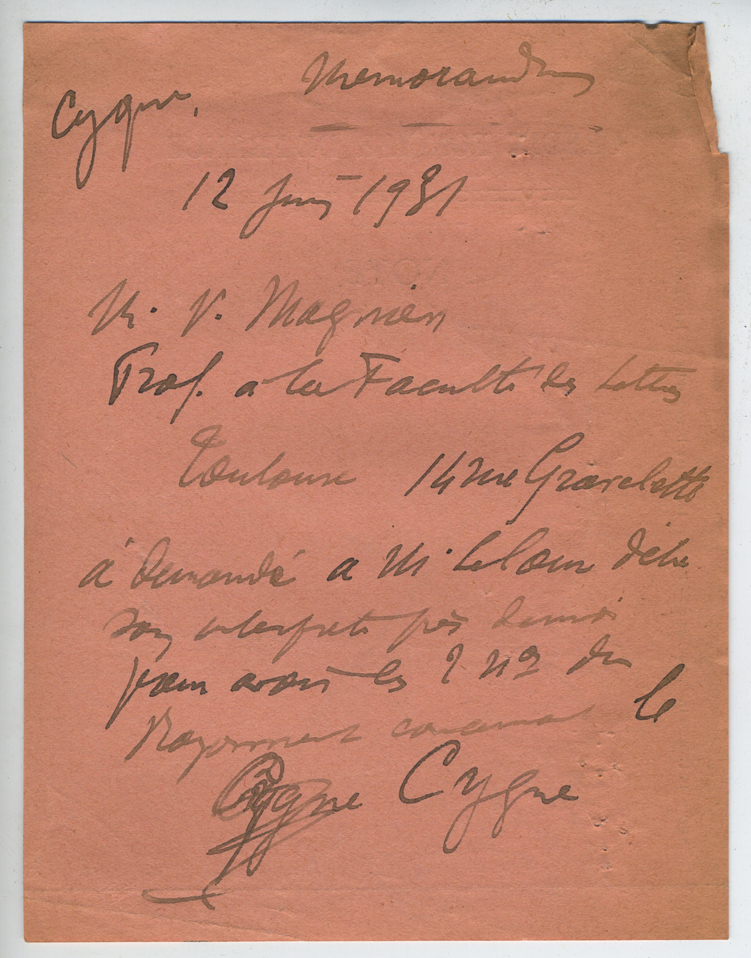 Memorandum
Cygne.
12 Juin 1931
M. V. Magnien
Prof. a la Faculté des Lettres
Toulouse 14 rue Gravelotte
à demandé a M. d'être
son interprète près de moi
pour avoir les 2 nos du
Rayonnant concernant le
Cygne Cygne